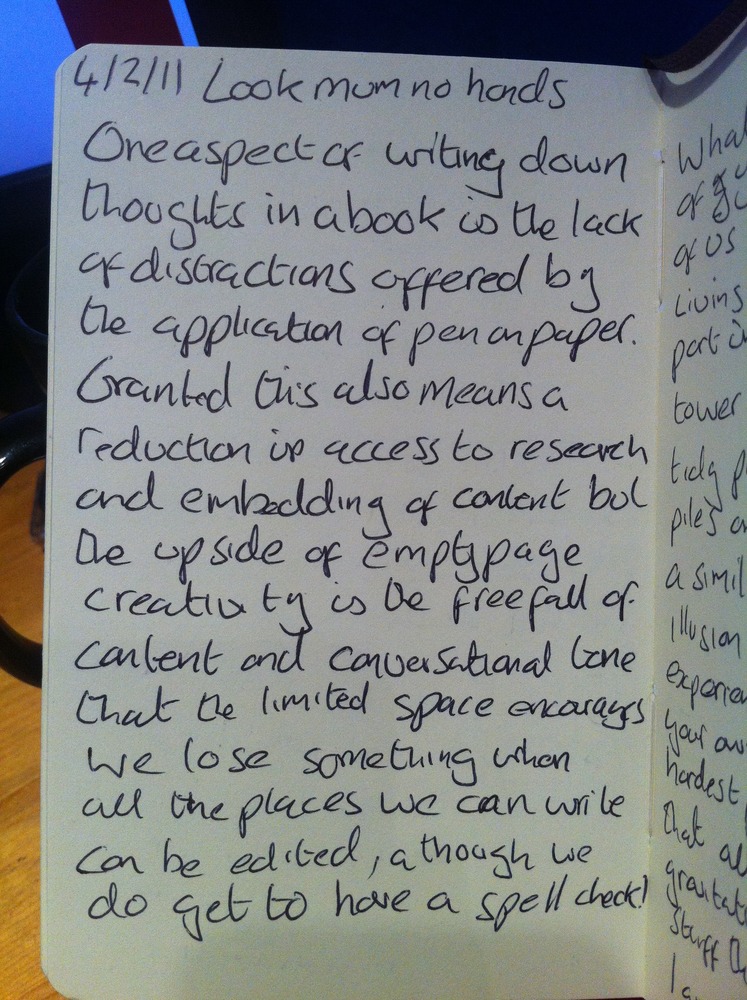 4/2/11 Look mum no hands
One aspect of writing down
thoughts in a book is the lack
of distractions offered by
the application of pen on paper.
Granted this also means a
reduction in access to research
and embedding of content but
the upside of empty page
creativity is the freefall of
content and conversational tone
that the limited space encourages
we lose something when
all the places we can write
can be edited, athough we
do get to have a spell check!
What
of
of us
Living
part
tower
tidy
piles
a
illusion
your
hardest
that
stuff